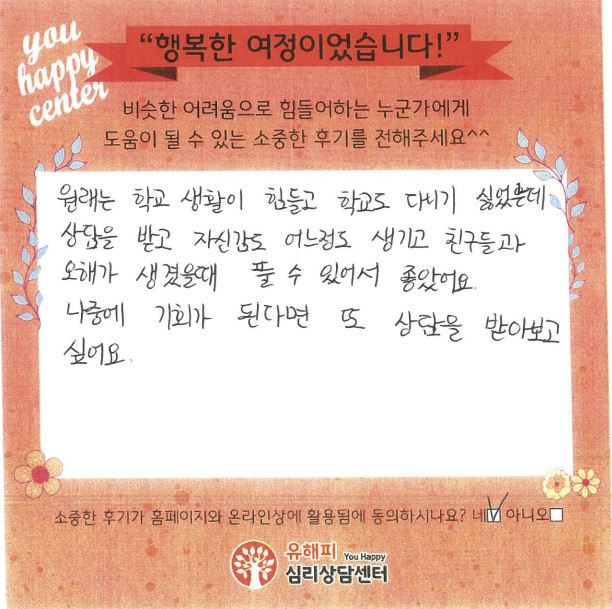 you
happy
center
“행복한 여정이었습니다!”
비슷한 어려움으로 힘들어하는 누군가에게
도움이 될 수 있는 소중한 후기를 전해주세요^^
원래는 학교 생활이 힘들고 학교도 다니기 싫었는데
상담을 받고 자신감도 어느정도 생기고 친구들과
오해가 생겼을때 풀 수 있어서 좋았어요.
나중에 기회가 된다면 또 상담을 받아보고
싶어요.
소중한 후기가 홈페이지와 온라인상에 활용됨에 동의하시나요? 네☑ 아니오☐
유해피 You Happy
심리상담센터